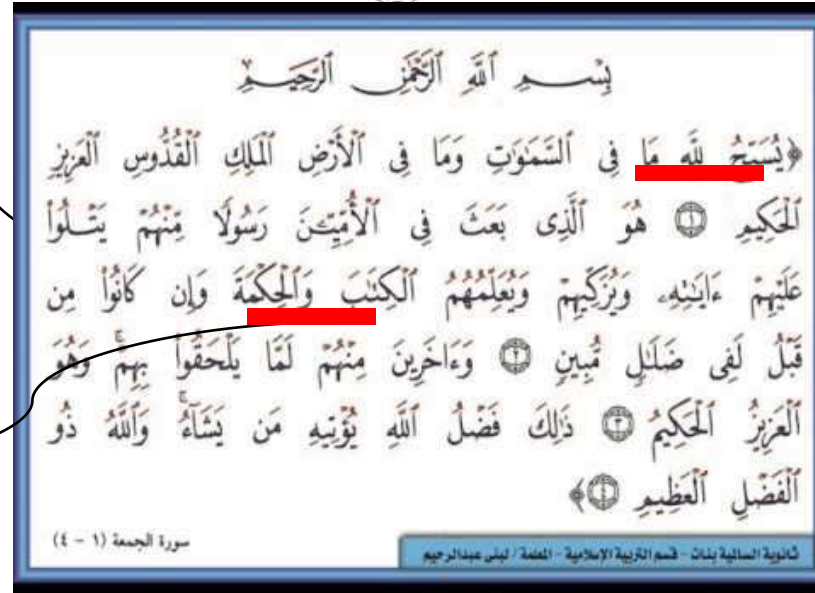 بِسْمِ ٱللَّهِ ٱلرَّحْمَٰنِ ٱلرَّحِيمِ
﴿يُسَبِّحُ لِلَّهِ مَا فِى ٱلسَّمَٰوَٰتِ وَمَا فِى ٱلْأَرْضِ ٱلْمَلِكِ ٱلْقُدُّوسِ ٱلْعَزِيزِ
ٱلْحَكِيمِ ١ هُوَ ٱلَّذِى بَعَثَ فِى ٱلْأُمِّيِّـۧنَ رَسُولًا مِّنْهُمْ يَتْلُوا۟
عَلَيْهِمْ ءَايَٰتِهِۦ وَيُزَكِّيهِمْ وَيُعَلِّمُهُمُ ٱلْكِتَٰبَ وَٱلْحِكْمَةَ وَإِن كَانُوا۟ مِن
قَبْلُ لَفِى ضَلَٰلٍ مُّبِينٍ ٢ وَءَاخَرِينَ مِنْهُمْ لَمَّا يَلْحَقُوا۟ بِهِمْ ۚ وَهُوَ
ٱلْعَزِيزُ ٱلْحَكِيمُ ٣ ذَٰلِكَ فَضْلُ ٱللَّهِ يُؤْتِيهِ مَن يَشَآءُ ۚ وَٱللَّهُ ذُو
ٱلْفَضْلِ ٱلْعَظِيمِ ٤﴾
سورة الجمعة (١ - ٤)
ثانوية السالمية بنات - قسم التربية الإسلامية - المعلمة / لبنى عبدالرحيم